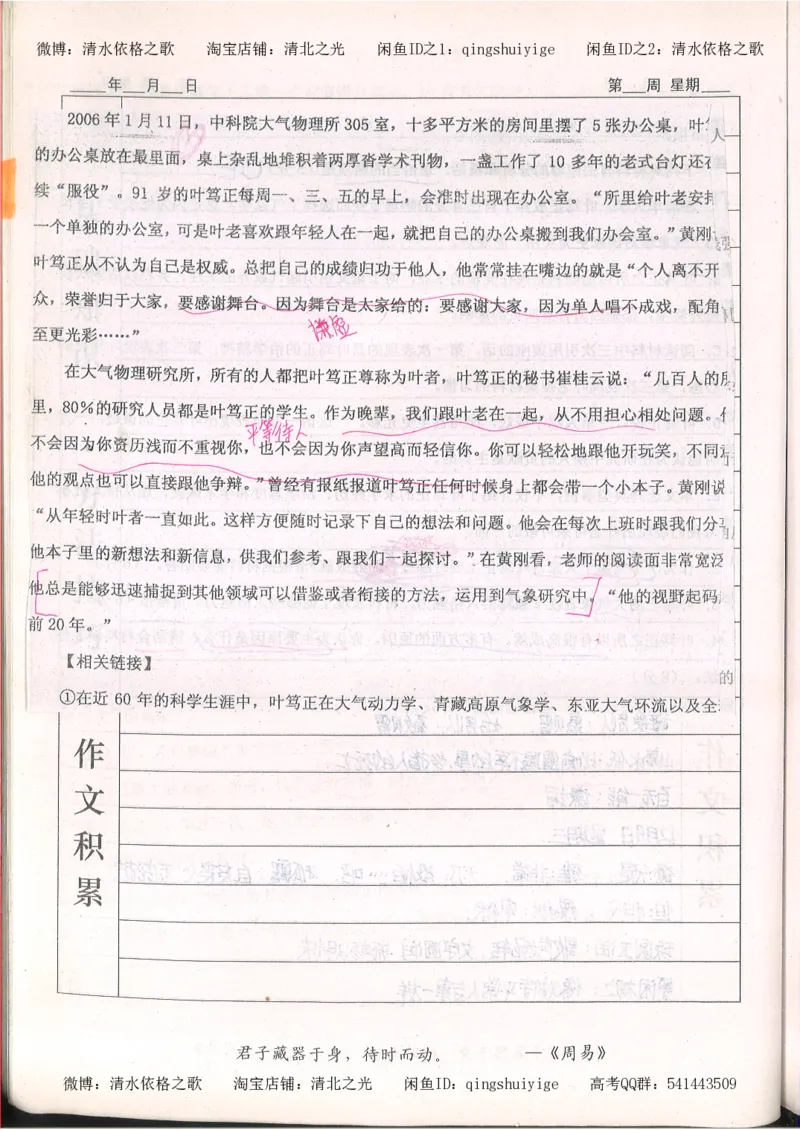 微博：清水依格之歌 淘宝店铺：清北之光 闲鱼ID之1：qingshuiyige 闲鱼ID之2：清水依格之歌
年 月 日 第 周 星期
2006年1月11日，中科院大气物理所305室，十多平方米的房间里摆了5张办公桌，叶
人
的办公桌放在最里面，桌上杂乱地堆积着两厚沓学术刊物，一盏工作了10多年的老式台灯还在
续“服役”。91岁的叶笃正每周一、三、五的早上，会准时出现在办公室。“所里给叶老安排
一个单独的办公室，可是叶老喜欢跟年轻人在一起，就把自己的办公桌搬到我们办会室。”黄刚
叶笃正从不认为自己是权威。总把自己的成绩归功于他人，他常常挂在嘴边的就是“个人离不开
众，荣誉归于大家，要感谢舞台。因为舞台是太家给的：要感谢大家，因为单人唱不成戏，配角
谦虚
至更光彩……”
在大气物理研究所，所有的人都把叶笃正尊称为叶者，叶笃正的秘书崔桂云说：“几百人的所
里，80%的研究人员都是叶笃正的学生。作为晚辈，我们跟叶老在一起，从不用担心相处问题。
平等待人
不会因为你资历浅而不重视你，也不会因为你声望高而轻信你。你可以轻松地跟他开玩笑，不同
他的观点也可以直接跟他争辩。”曾经有报纸报道叶笃正任何时候身上都会带一个小本子。黄刚说
“从年轻时叶者一直如此。这样方便随时记录下自己的想法和问题。他会在每次上班时跟我们分
他本子里的新想法和新信息，供我们参考、跟我们一起探讨。”在黄刚看，老师的阅读面非常宽泛
他总是能够迅速捕捉到其他领域可以借鉴或者衔接的方法，运用到气象研究中。“他的视野起码
前20年。”
【相关链接】
的
①在近60年的科学生涯中，叶笃正在大气动力学、青藏高原气象学、东亚大气环流以及全
作文积累
君子藏器于身，待时而动。 —《周易》
微博：清水依格之歌 淘宝店铺：清北之光 闲鱼ID：qingshuiyige 高考QQ群：541443509